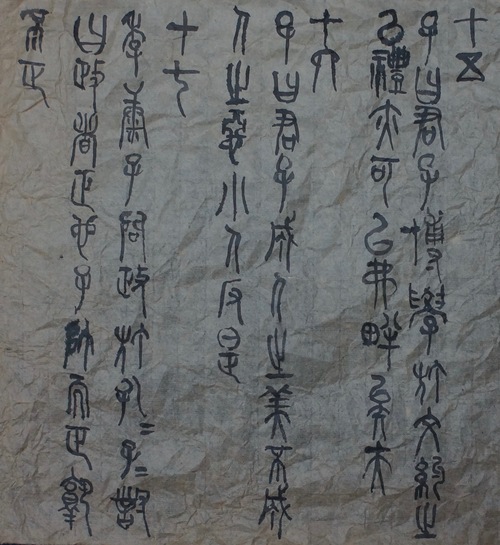 十五
子曰君子博學於文約之
以禮亦可以弗畔矣夫
十六
子曰君子成人之美不成
人之惡小人反是
十七
季康子問政於孔〻子〻對
曰政者正也子帥而正孰
不正